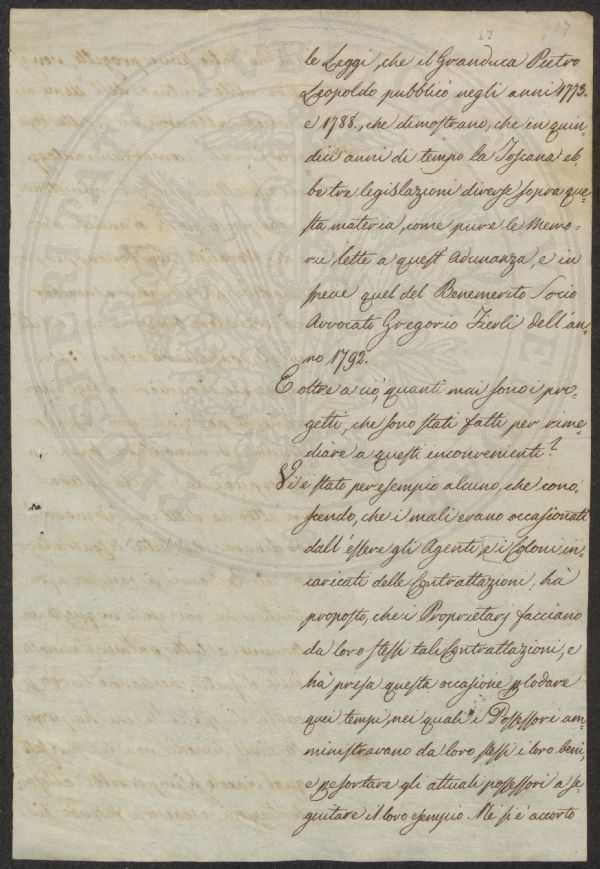 17
le Leggi, che il Granduca Pietro
Leopoldo pubblicò negli anni 1773.
e 1788., che dimostrano, che in quin-
dici anni di tempo la Toscana eb-
be tre legislazioni diverse sopra que-
sta materia, come pure le Memo-
rie, lette a quest' Adunanza, e in
specie quel del Benemerito Socio
Avvocato Gregorio Fierli dell'an-
no 1792.
E oltre a ciò quanti mai sono i pro-
getti, che sono stati fatti, per rime-
diare a questi inconvenienti?
Vi è stato per esempio alcuno, che cono-
scendo, che i mali erano occasionati
dall'essere gli Agenti, e i Coloni in-
caricati delle Contrattazioni, há
proposto, che i Proprietarj facciano
da loro stessi tali Contrattazioni, e
há presa questa occasione p lodare
quei tempi, nei quali i Possessori am-
ministravano da loro stessi i loro beni,
e p esortare gli attuali possessori a se-
guitare il loro esempio. Mà si è accorto